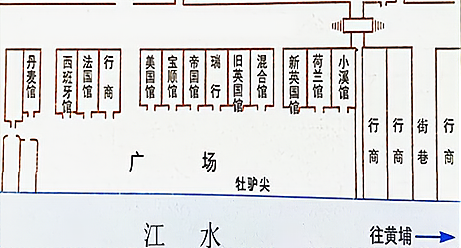 丹麦馆
西班牙馆
法国馆
行商
美国馆
宝顺馆
帝国馆
瑞行
旧英国馆
混合馆
新英国馆
荷兰馆
小溪馆
行商
行商
街巷
行商
广场
牡驴尖
江水
往黄埔